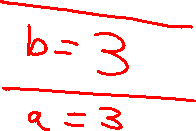 b = 3
a = 3